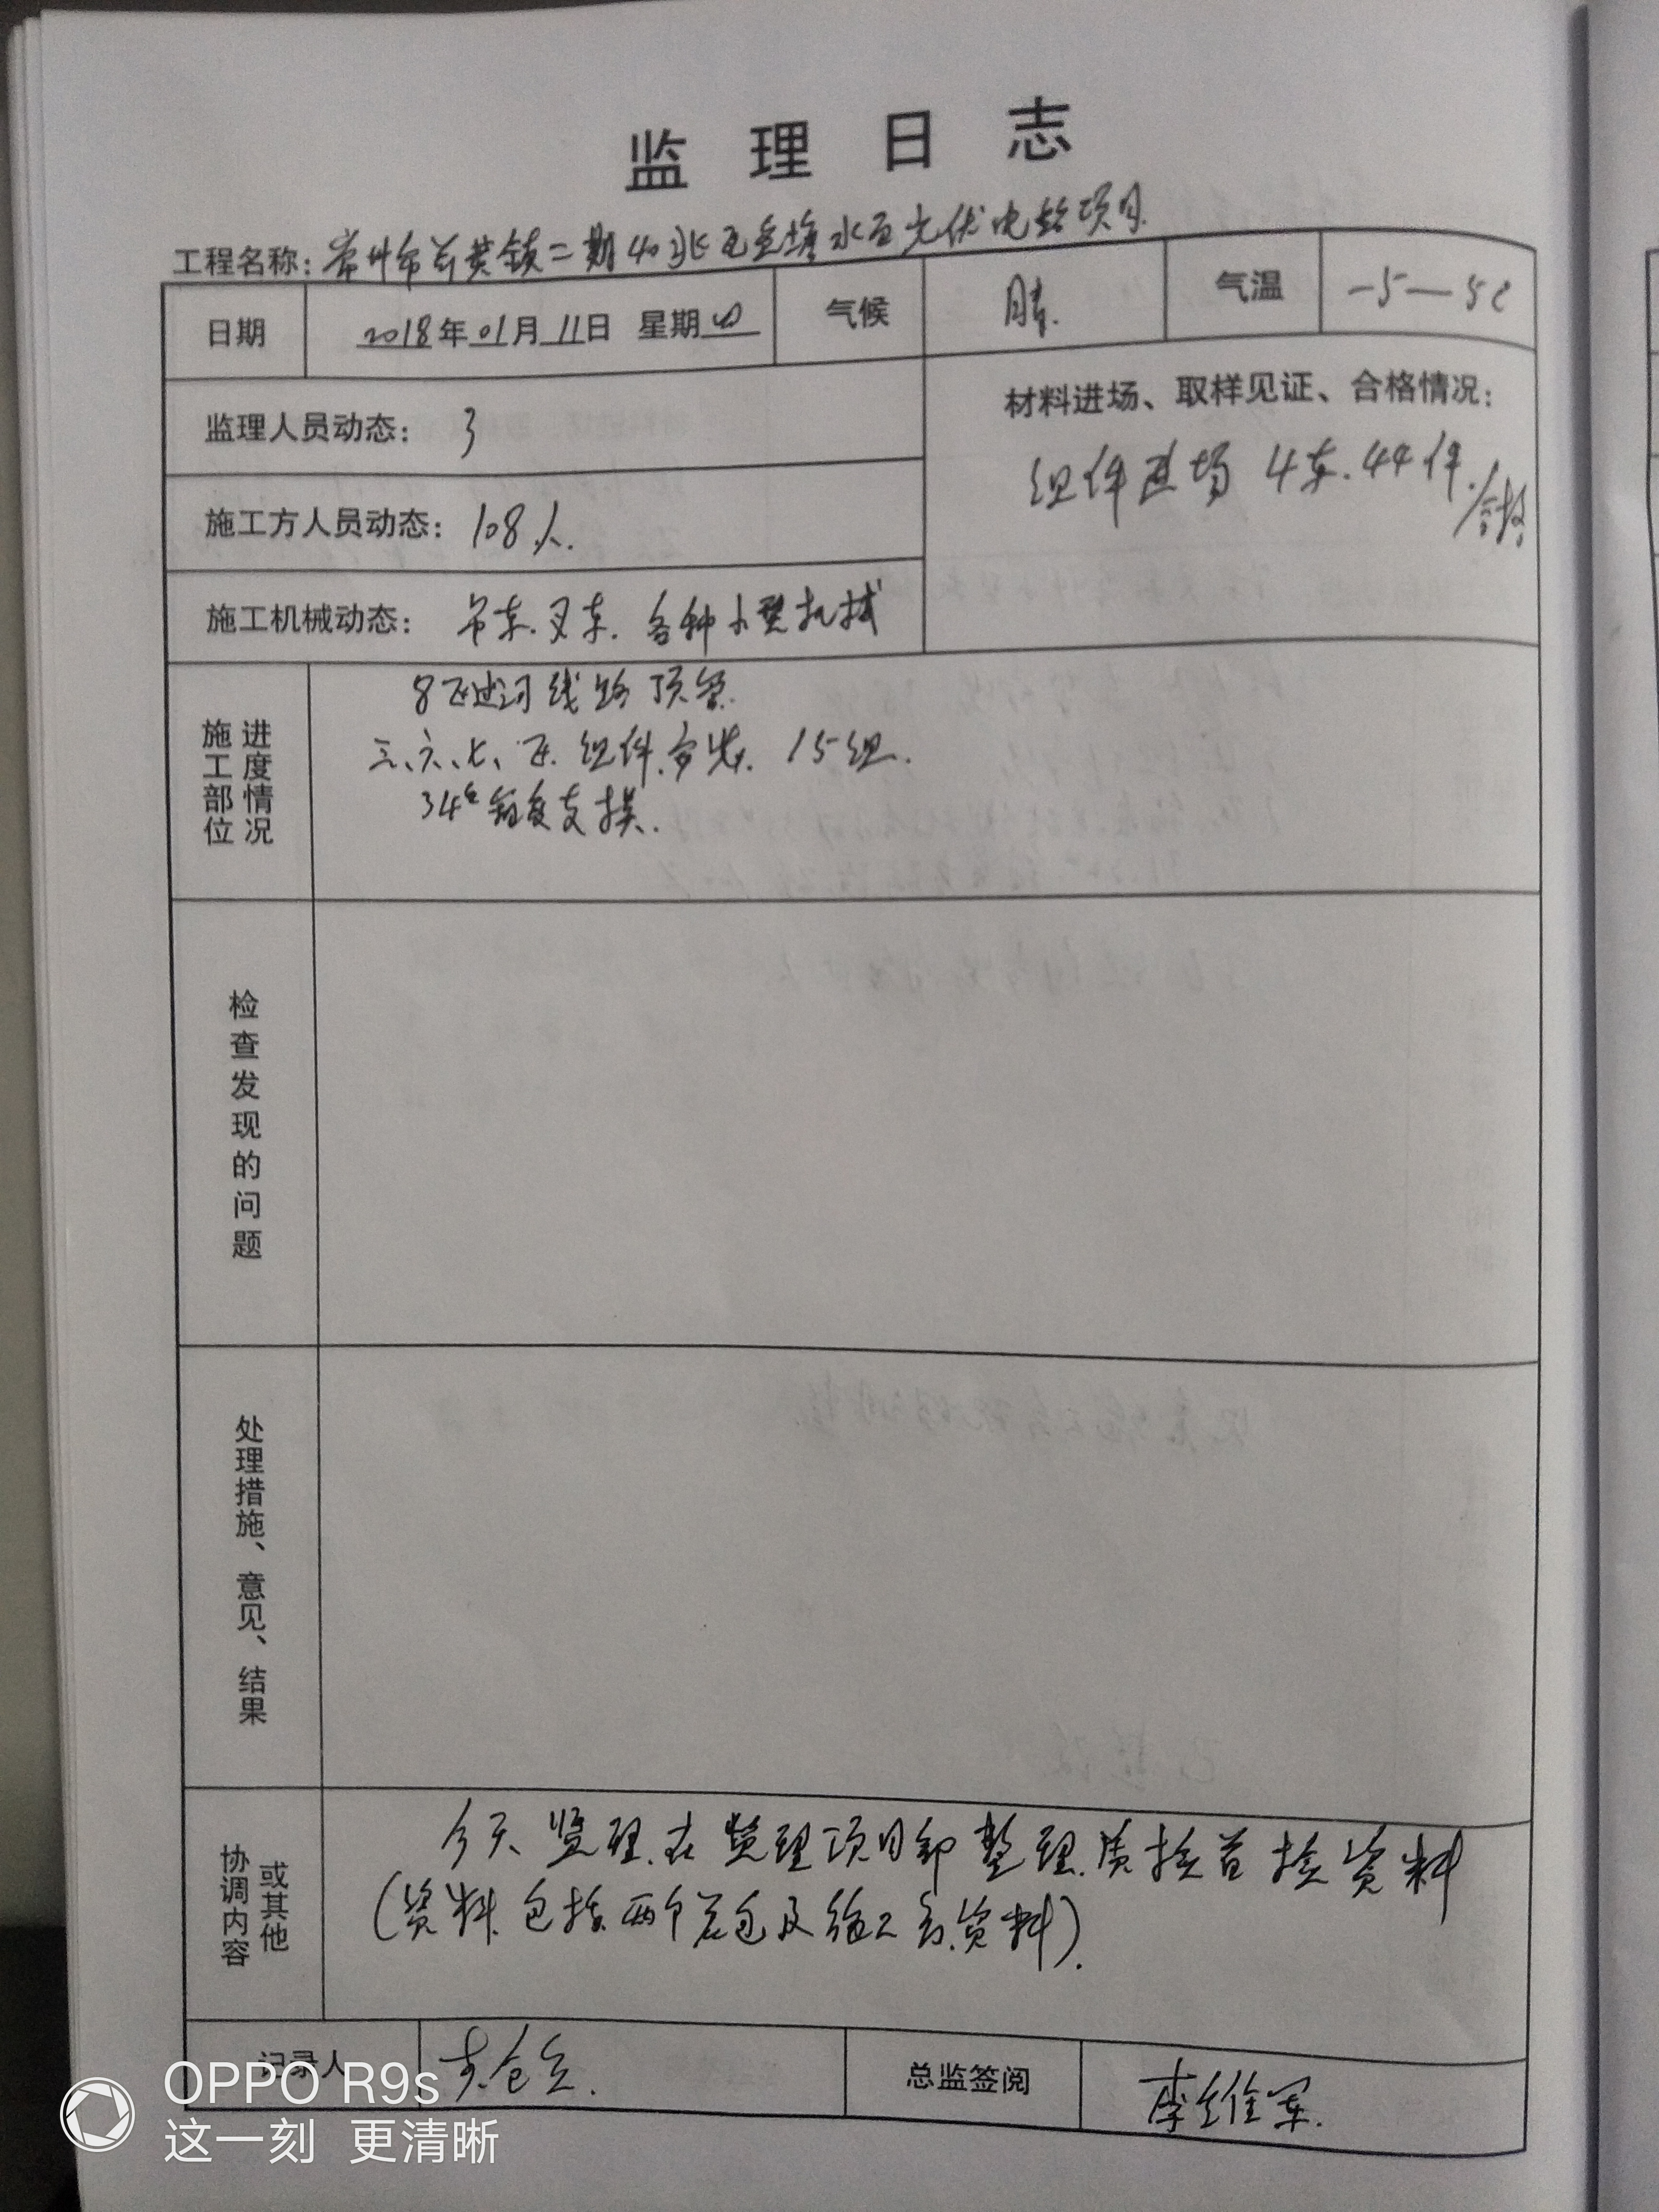 监理日志
工程名称: 常州市前黄镇二期40兆瓦鱼塘水面光伏电站项目
日期 2018年01月11日 星期四 气候 晴. 气温 -5—5℃
监理人员动态: 3
材料进场、取样见证、合格情况:
组件进场 4车.44件./合格
施工方人员动态: 108人.
施工机械动态: 吊车.叉车. 各种小型机械
施工部位 进度情况
8区过河线路顶管.
三、六、七、区.组件安装. 15组.
34#
支撑.
检查发现的问题
处理措施、意见、结果
协调内容 或其他
今天监理.在监理项目部整理.质检首检资料
(资料.包括.两个总包及施工方.资料).
记录人
总监签阅 李维军.
OPPO R9s
这一刻 更清晰